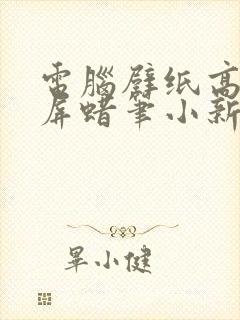 電腦壁纸高
屏蜡笔小新
畢小健